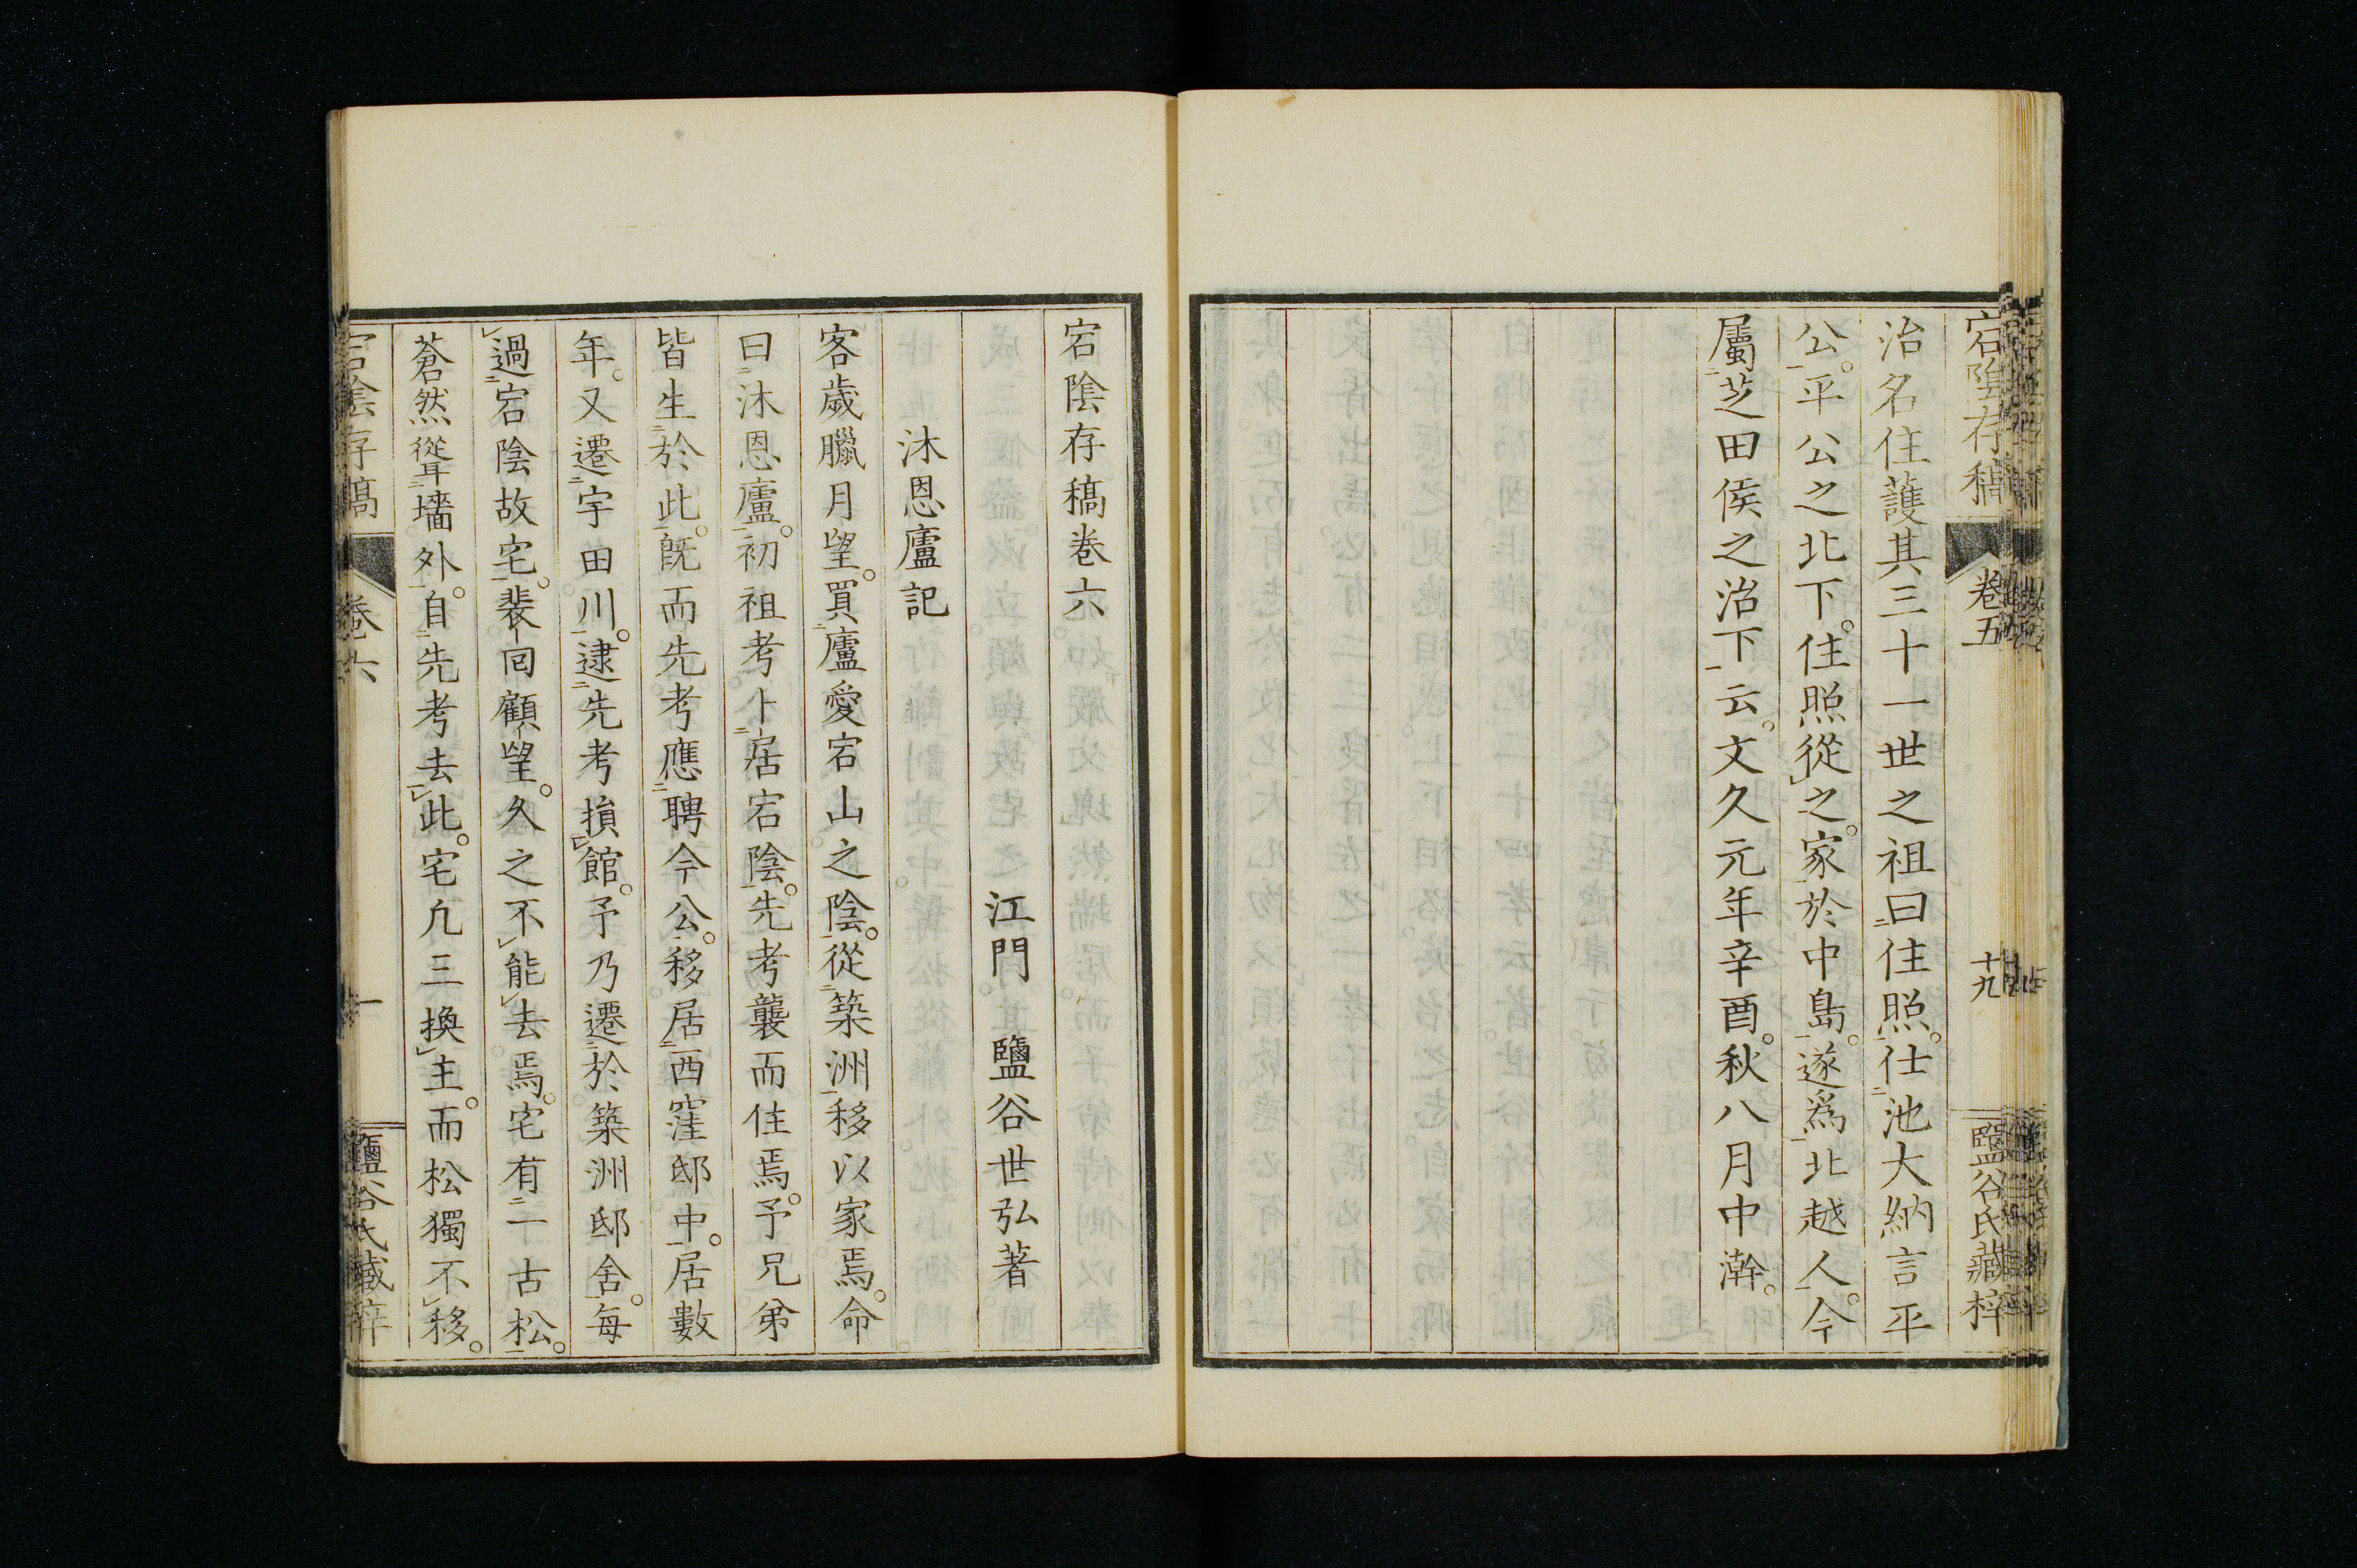 宕陰存稿
卷五
十九
鹽谷氏藏梓
治名住護其三十一世之祖曰住照。仕池大納言平
公。平公之北下。住照從之。家於中島。遂爲北越人。今
屬芝田侯之治下云。文久元年辛酉。秋八月中澣。
宕陰存稿卷六
江門 鹽谷世弘著
沐恩廬記
客歲臘月望。買廬愛宕山之陰。從築洲移以家焉。命
曰沐恩廬。初祖考卜居宕陰。先考襲而住焉。予兄弟
皆生於此。旣而先考應聘今公。移居西窪邸中。居數
年。又遷宇田川。逮先考損館。予乃遷於築洲邸舍。每
過宕陰故宅。裴囘顧望。久之不能去焉。宅有一古松。
蒼然聳墻外。自先考去此。宅凡三換主。而松獨不移。
宕陰存稿
卷六
一
鹽谷氏藏梓